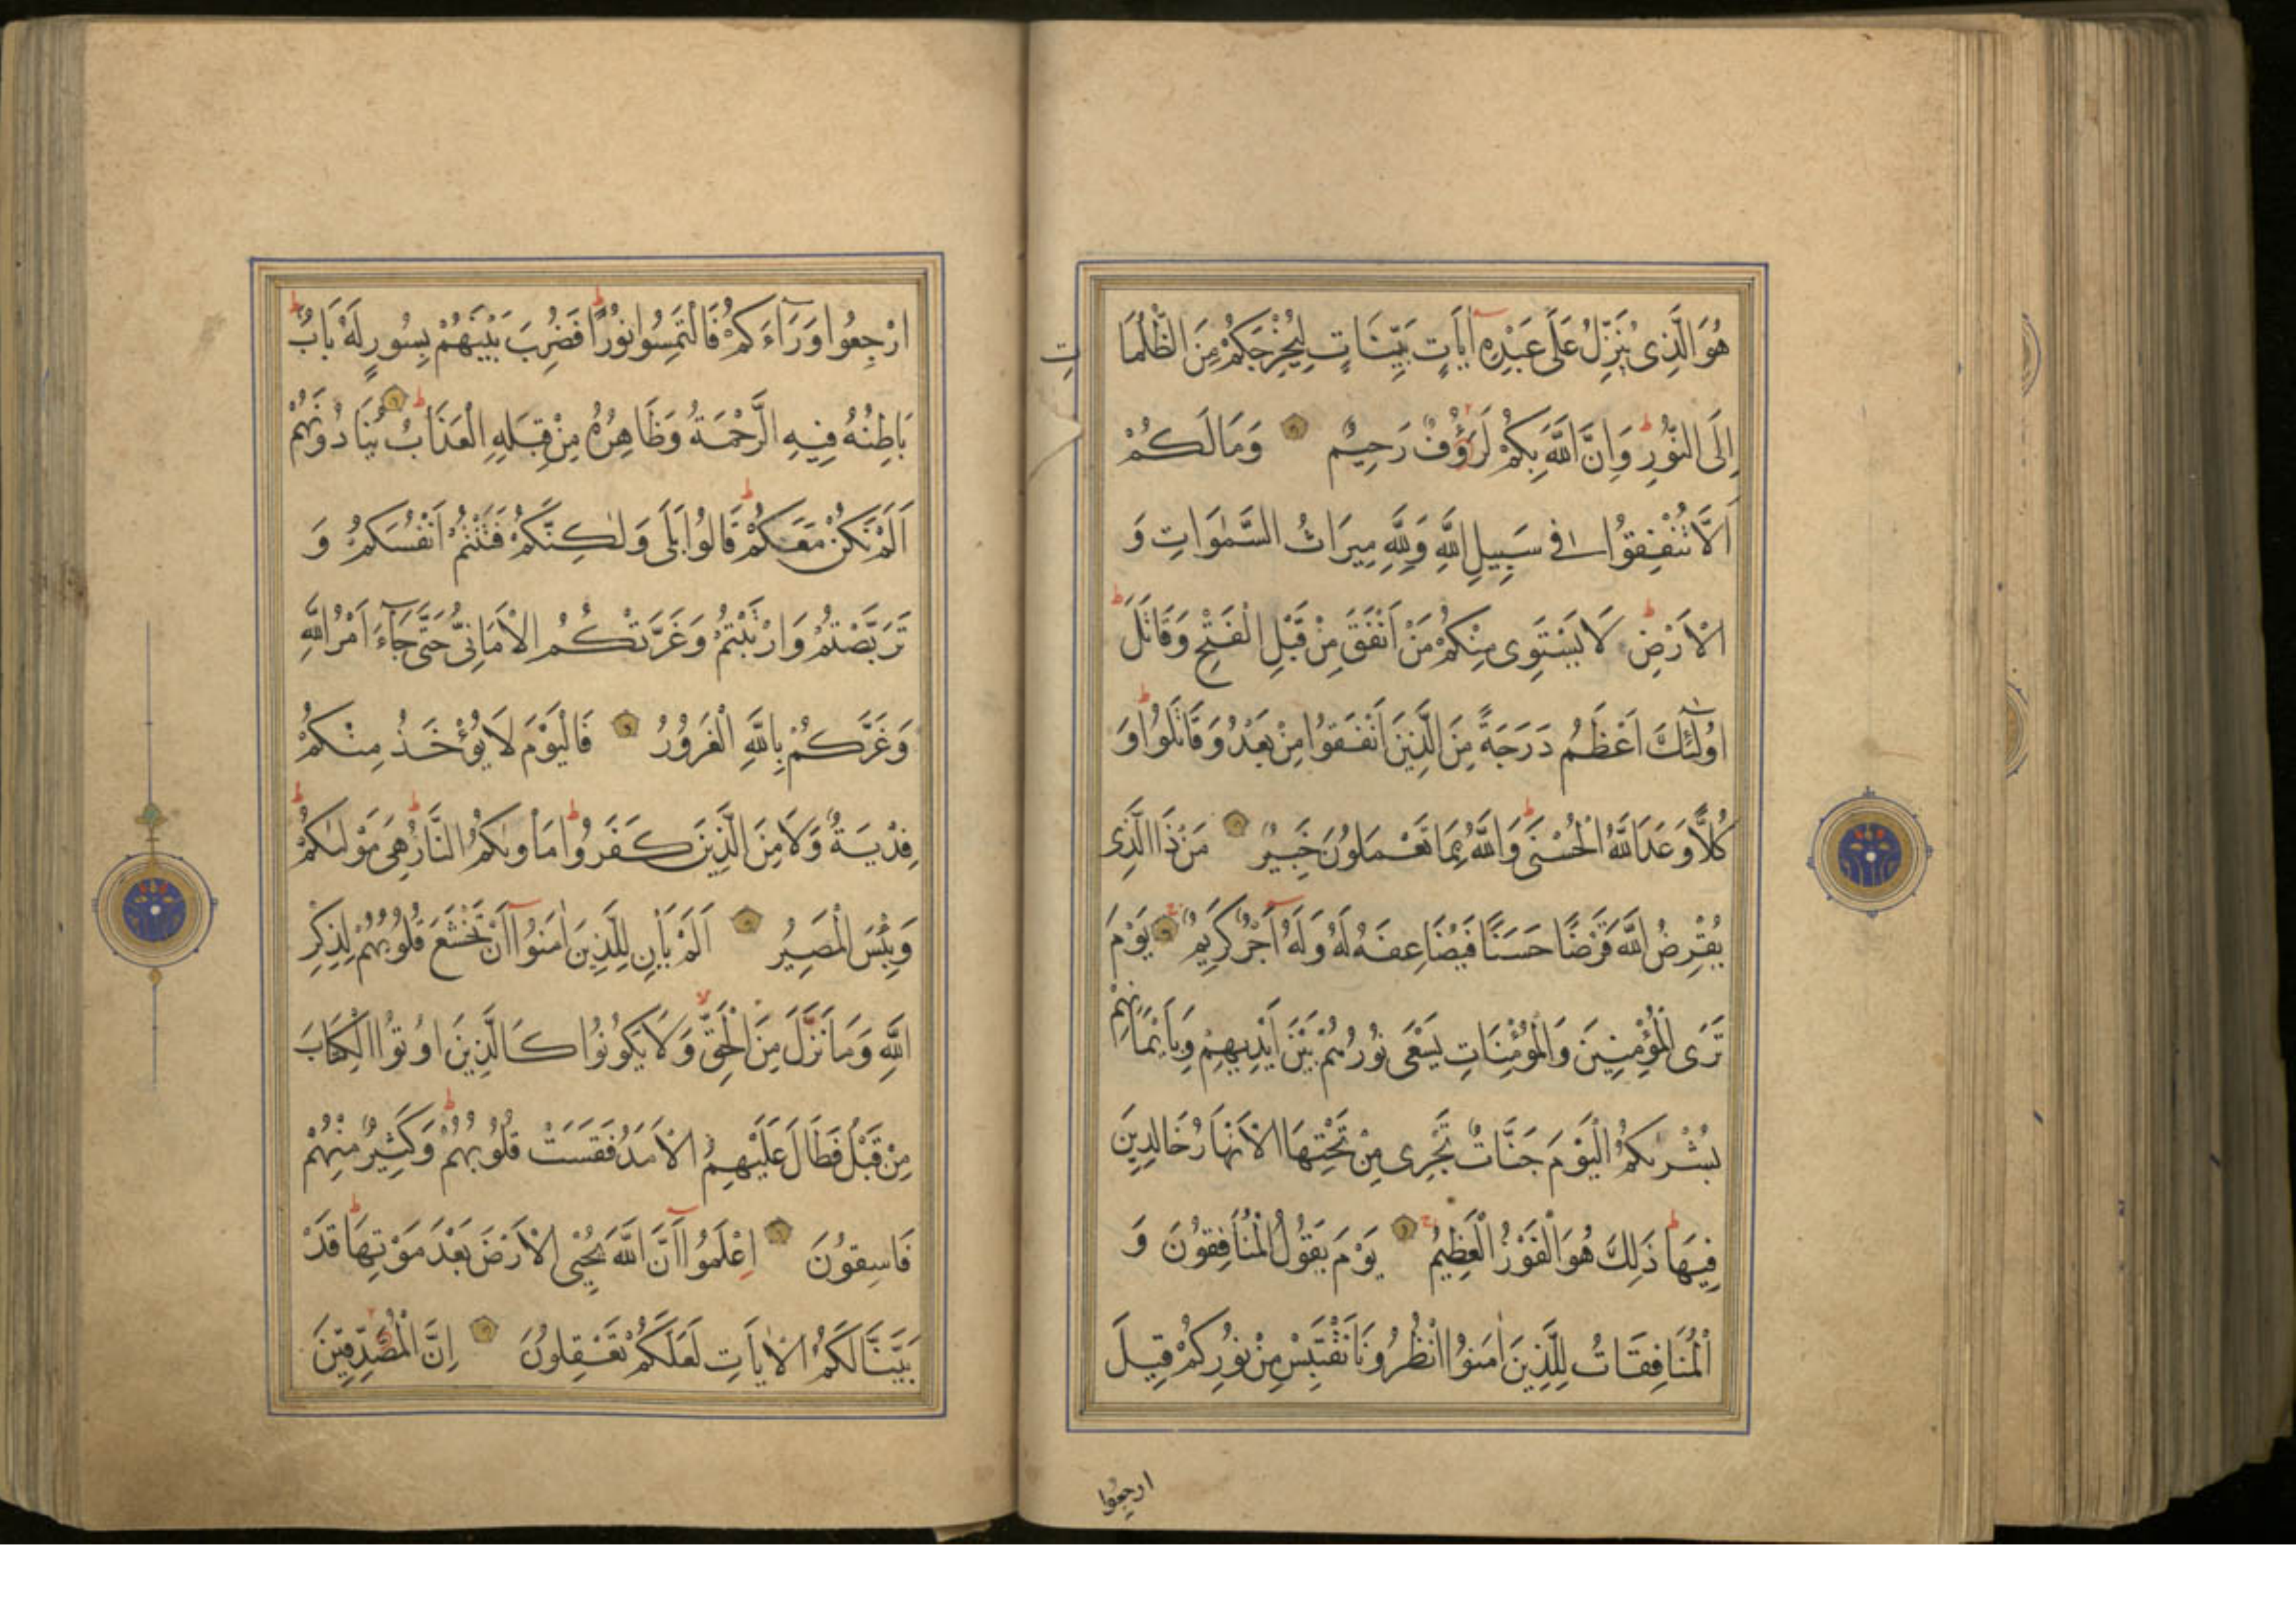 هُوَ الَّذِى يُنَزِّلُ عَلَى عَبْدِهِ اٰيَاتٍ بَيِّنَاتٍ لِيُخْرِجَكُمْ مِنَ الظُّلُمَاتِ
اِلَى النُّورِ ط وَاِنَّ اللّٰهَ بِكُمْ لَرَؤُفٌ رَحِيمٌ وَمَالَكُمْ
اَلَّا تُنْفِقُوا فِى سَبِيلِ اللّٰهِ وَلِلّٰهِ مِيرَاثُ السَّمٰوَاتِ وَ
الْاَرْضِ ط لَا يَسْتَوِى مِنْكُمْ مَنْ اَنْفَقَ مِنْ قَبْلِ الْفَتْحِ وَقَاتَلَ ط
اُولٰٓئِكَ اَعْظَمُ دَرَجَةً مِنَ الَّذِينَ اَنْفَقُوا مِنْ بَعْدُ وَقَاتَلُوا ط وَ
كُلًّا وَعَدَ اللّٰهُ الْحُسْنَى ط وَاللّٰهُ بِمَا تَعْمَلُونَ خَبِيرٌ مَنْ ذَا الَّذِى
يُقْرِضُ اللّٰهَ قَرْضًا حَسَنًا فَيُضَاعِفَهُ لَهُ وَلَهُٓ اَجْرٌ كَرِيمٌ ج يَوْمَ
تَرَى الْمُؤْمِنِينَ وَالْمُؤْمِنَاتِ يَسْعَى نُورُهُمْ بَيْنَ اَيْدِيهِمْ وَبِاَيْمَانِهِمْ
بُشْرٰىكُمُ الْيَوْمَ جَنَّاتٌ تَجْرِى مِنْ تَحْتِهَا الْاَنْهَارُ خَالِدِينَ
فِيهَا ط ذَلِكَ هُوَ الْفَوْزُ الْعَظِيمُ ج يَوْمَ يَقُولُ الْمُنَافِقُونَ وَ
الْمُنَافِقَاتُ لِلَّذِينَ اٰمَنُوا انْظُرُونَا نَقْتَبِسْ مِنْ نُورِكُمْ قِيلَ
ارجِعُوا
ارْجِعُوا وَرَآءَكُمْ فَالْتَمِسُوا نُورًا ط فَضُرِبَ بَيْنَهُمْ بِسُورٍ لَهُ بَابٌ ط
بَاطِنُهُ فِيهِ الرَّحْمَةُ وَظَاهِرُهُ مِنْ قِبَلِهِ الْعَذَابُ ط يُنَادُونَهُمْ
اَلَمْ نَكُنْ مَعَكُمْ ط قَالُوا بَلَى وَلٰكِنَّكُمْ فَتَنْتُمْ اَنْفُسَكُمْ وَ
تَرَبَّصْتُمْ وَارْتَبْتُمْ وَغَرَّتْكُمُ الْاَمَانِىُّ حَتَّى جَآءَ اَمْرُ اللّٰهِ
وَغَرَّكُمْ بِاللّٰهِ الْغَرُورُ فَالْيَوْمَ لَا يُؤْخَذُ مِنْكُمْ
فِدْيَةٌ وَلَا مِنَ الَّذِينَ كَفَرُوا ط مَأْوٰىكُمُ النَّارُ ط هِىَ مَوْلٰىكُمْ ط
وَبِئْسَ الْمَصِيرُ اَلَمْ يَأْنِ لِلَّذِينَ اٰمَنُوٓا اَنْ تَخْشَعَ قُلُوبُهُمْ لِذِكْرِ
اللّٰهِ وَمَا نَزَّلَ مِنَ الْحَقِّ لا وَلَا يَكُونُوا كَالَّذِينَ اُوتُوا الْكِتَابَ
مِنْ قَبْلُ فَطَالَ عَلَيْهِمُ الْاَمَدُ فَقَسَتْ قُلُوبُهُمْ ط وَكَثِيرٌ مِنْهُمْ
فَاسِقُونَ اِعْلَمُوٓا اَنَّ اللّٰهَ يُحْيِى الْاَرْضَ بَعْدَ مَوْتِهَا ط قَدْ
بَيَّنَّا لَكُمُ الْاٰيَاتِ لَعَلَّكُمْ تَعْقِلُونَ اِنَّ الْمُصَّدِّقِينَ